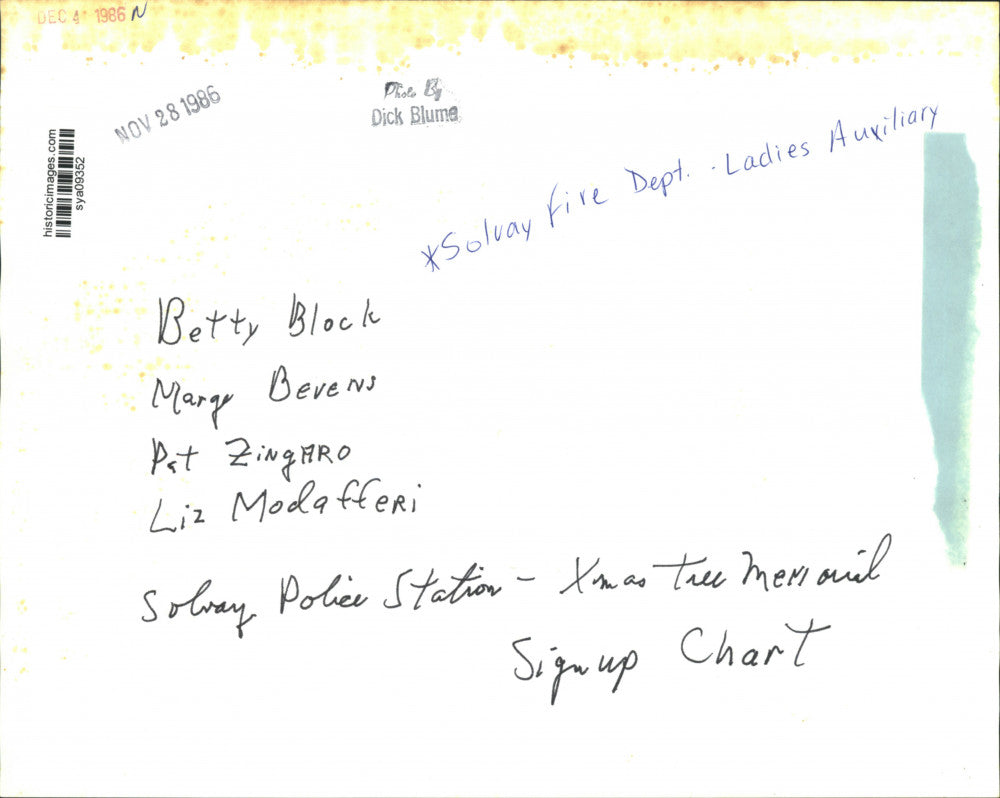 DEC 4 1986 N
NOV 28 1986
Photo By
Dick Blume
historicimages.com
sya09352
*Solvay Fire Dept. - Ladies Auxiliary
Betty Block
Marge Bevens
Pat Zingaro
Liz Modafferi
Solvay Police Station - Xmas Tree Memorial
Signup Chart